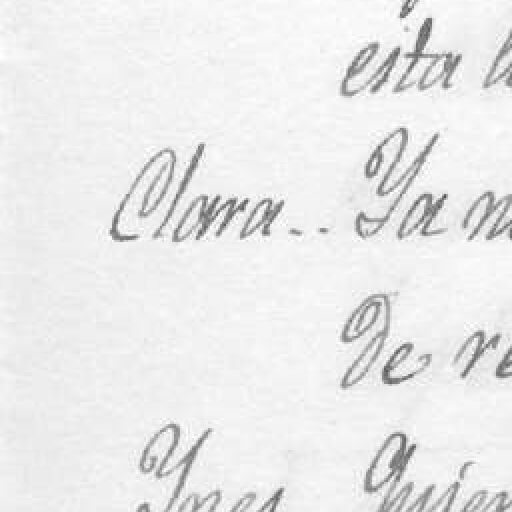 esta
Clara.. Ya
De
Ynes Quien